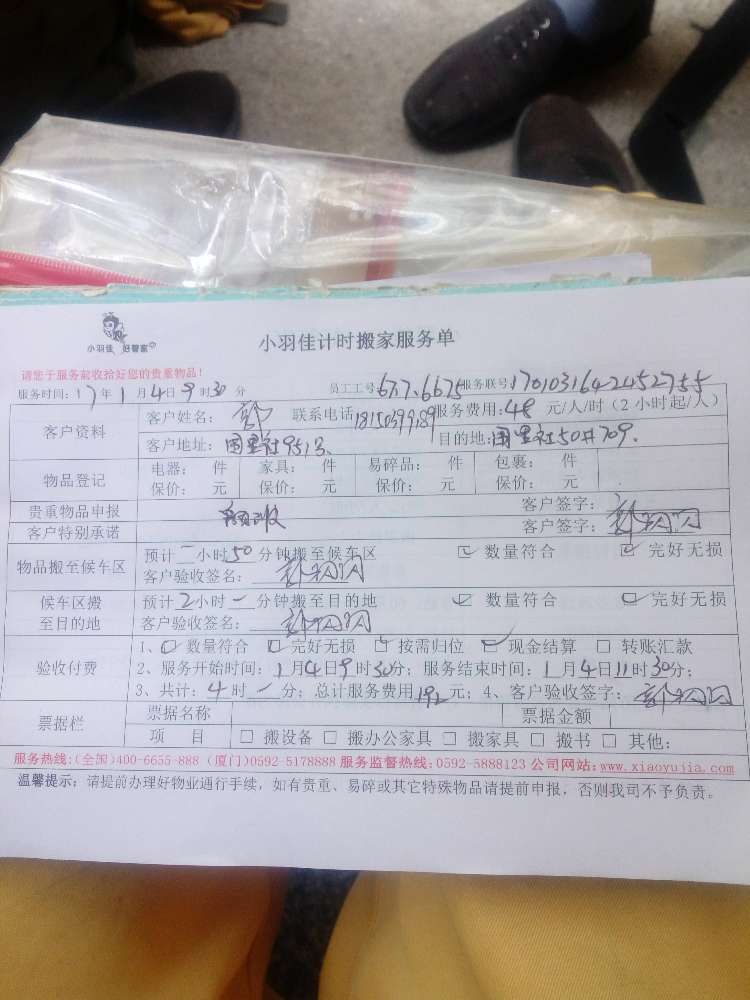 小羽佳 好管家
小羽佳计时搬家服务单
请您于服务前收拾好您的贵重物品!
服务时间:17年1月4日9时30分 员工工号677.6675服务联号17010316424527 55
客户资料 客户姓名:郭 联系电话18150399189服务费用:48 元/人/时(2小时起/人)
客户地址: 目的地:
物品登记 电器: 件 家具: 件 易碎品: 件 包裹: 件
保价: 元 保价: 元 保价: 元 保价: 元
贵重物品申报 客户签字:
客户特别承诺 客户签字:
物品搬至候车区 预计一小时50分钟搬至候车区 ☑ 数量符合 ☑ 完好无损
客户验收签名:
候车区搬至目的地 预计2小时一分钟搬至目的地 ☑ 数量符合 ☑ 完好无损
客户验收签名:
验收付费 1、☑ 数量符合 ☑ 完好无损 ☑ 按需归位 ☑ 现金结算 □ 转账汇款
2、服务开始时间:1月4日9时30分;服务结束时间:1月4日11时30分;
3、共计:4时一分;总计服务费用192元;4、客户验收签字:
票据栏 票据名称 票据金额
项 目 □ 搬设备 □ 搬办公家具 □ 搬家具 □ 搬书 □ 其他:
服务热线:(全国)400-6655-888 (厦门)0592-5178888 服务监督热线:0592-5888123 公司网站:www.xiaoyujia.com
温馨提示:请提前办理好物业通行手续,如有贵重、易碎或其它特殊物品请提前申报,否则我司不予负责。